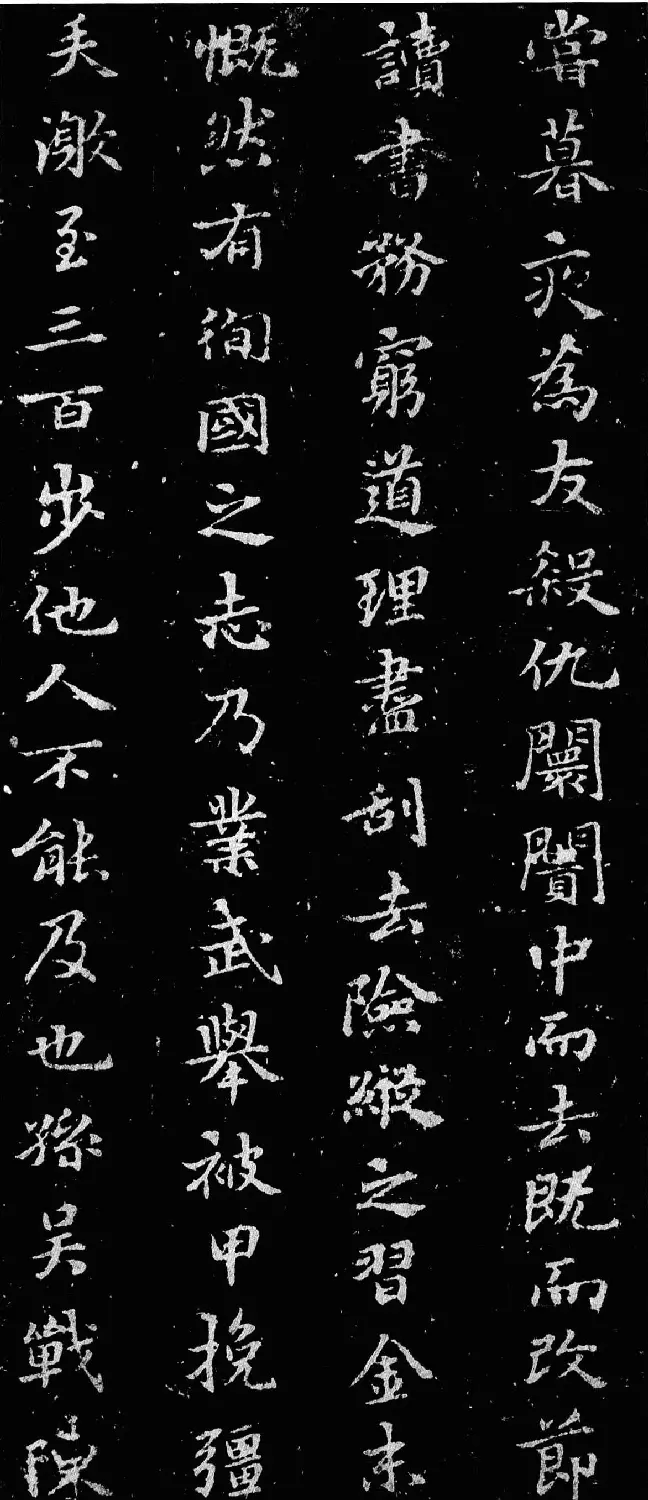 嘗暮夜為友殺仇闤闠中而去既而改節
讀書務窮道理盡刮去險縱之習金末
慨然有徇國之志乃業武舉被甲挽彊
矢激至三百步他人不能及也孫吳戰陳